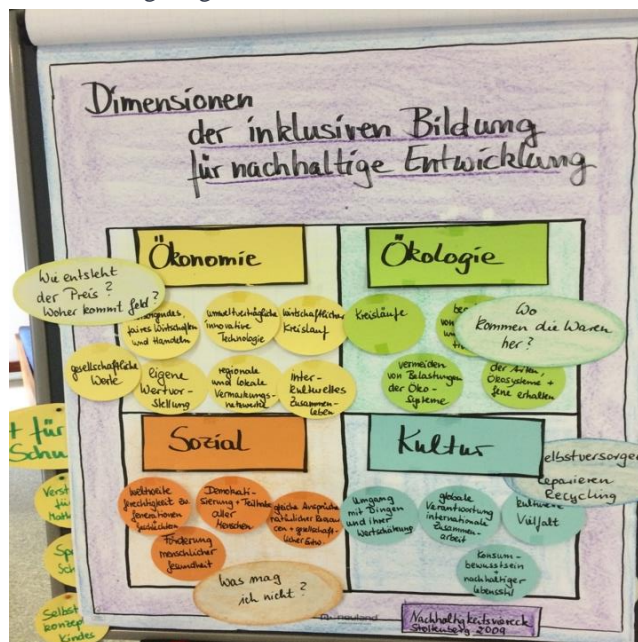 Dimensionen
der inklusiven Bildung
für nachhaltige Entwicklung
Ökonomie
Wie entsteht
der Preis?
Woher kommt Geld?
faires Wirtschaften
und Handeln
umweltverträgliche
innovative
Technologie
wirtschaftlicher
Kreislauf
gesellschaftliche
Werte
eigene
Wertvor-
stellung
regionale
und lokale
Vermarktungs-
netzwerke
Inter-
kulturelles
Zusammen-
leben
Ökologie
Kreisläufe
Wo
kommen die Waren
her?
vermeiden
von Belastungen
der Öko-
systeme
der Arten,
Ökosysteme +
Gene erhalten
Sozial
weltweite
Gerechtigkeit zw.
generationen
Demokrati-
sierung + Teilhabe
aller
Menschen
gleiche Ansprüche
natürlicher Ressour
cen + gesellschaft-
licher
Förderung
menschlicher
Gesundheit
Was mag
ich nicht?
Kultur
elbstversorger
eparieren
Recycling
Umgang
mit Dingen
und ihrer
Wertschätzung
globale
Verantwortung
internationale
Zusammen-
arbeit
kulturelle
Vielfalt
Konsum-
bewusstsein
+
nachhaltiger
Lebensstil
+ für
Schu
Verst
für
Sp
Sch
Selbst
konzep
Kindes
neuland
Nachhaltigkeitsviereck
Stoltenberg 2009